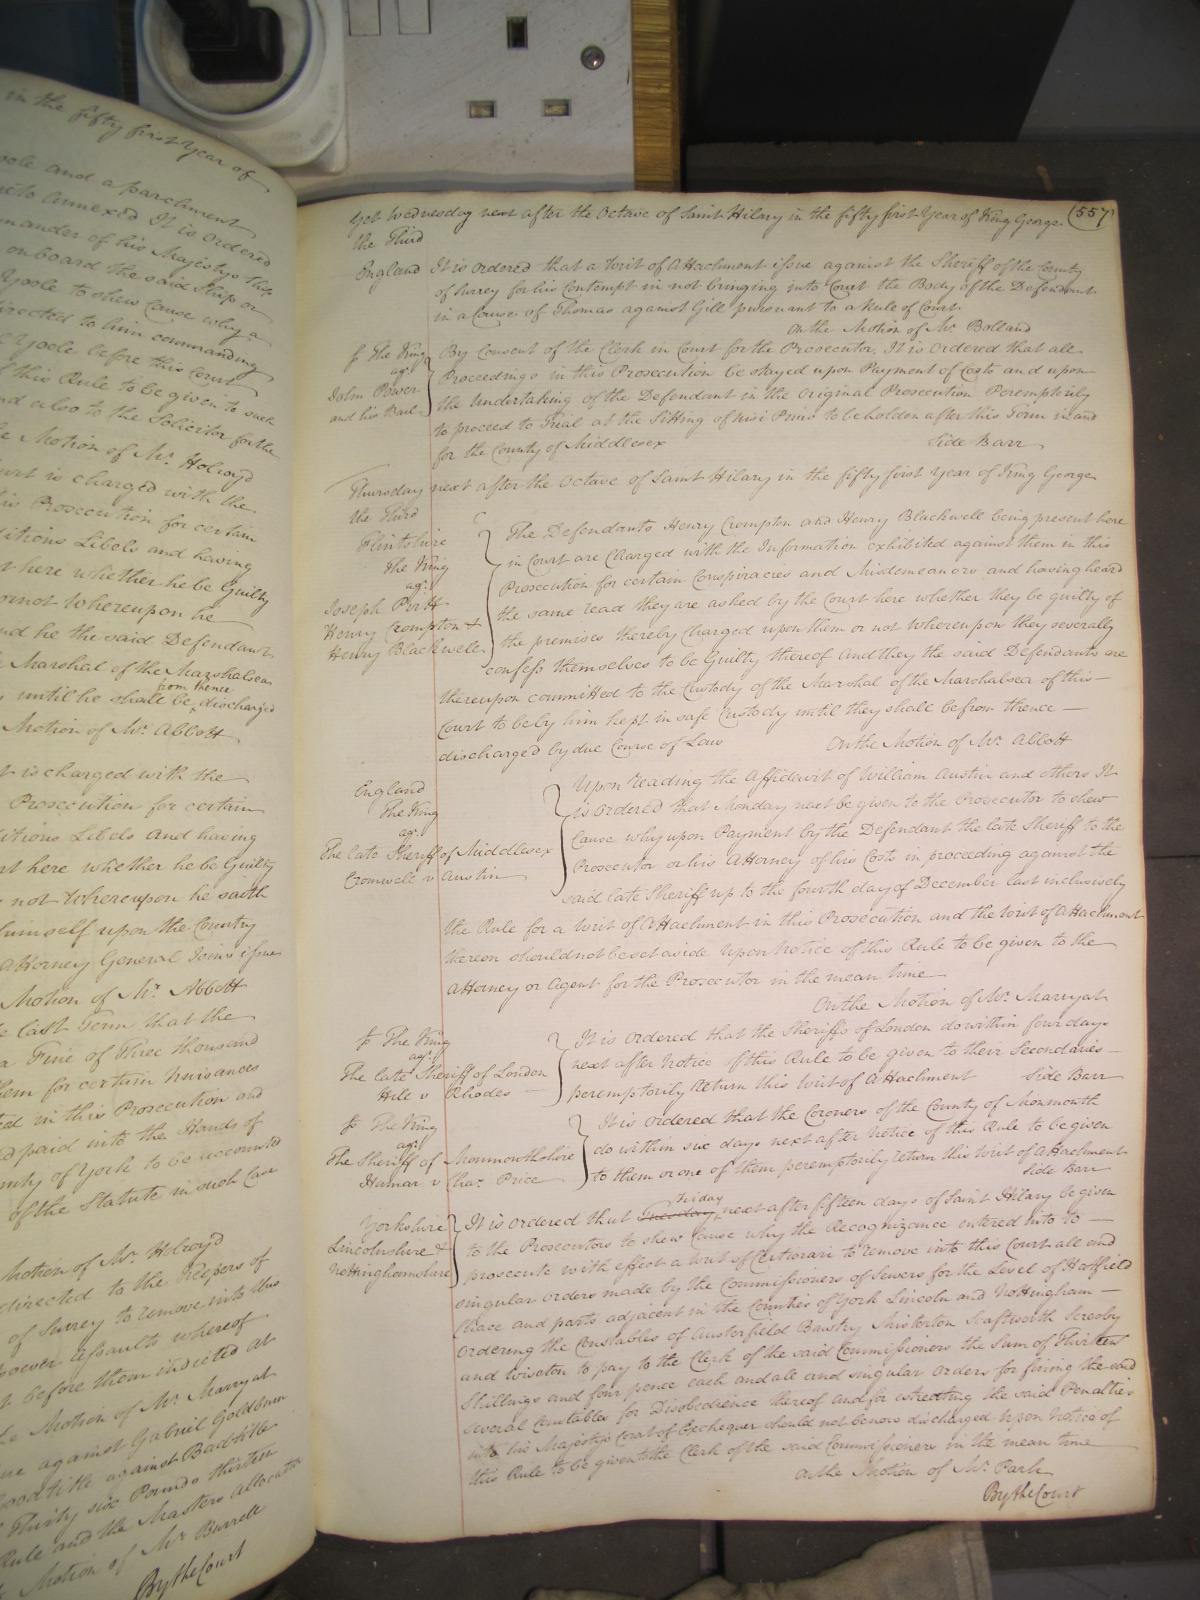 in the fifty first Year of
and a parchment
annexed It is ordered
mander of his Majestys Ship
onboard the said Ship or
Poole to shew Cause why a
directed to him commanding
Poole before this Court
this Rule to be given to such
nd also to the Solicitor for the
Motion of Mr. Holroyd
is charged with the
is Prosecution for certain
ditious Libels and having
t here whether he be Guilty
or not Whereupon he
nd he the said Defendant
Marshal of the Marshalsea
until he shall be from thence discharged
Motion of Mr. Abbott
t is charged with the
Prosecution for certain
ditious Libels and having
rt here whether he be Guilty
not Whereupon he saith
himself upon the Country
Attorney General Joins issue
Motion of Mr. Abbott
last Term that the
a Fine of Three thousand
them for certain Nuisances
ted in this Prosecution and
d paid into the Hands of
unty of York to be accounted
of the Statute in such Case
Motion of Mr. Holroyd
directed to the Keepers of
of Surrey to remove into this
soever Assaults whereof
t before them indicted at
the Motion of Mr. Marryat
ue against Gabriel Goldburn
Goodtitle against Badtitle
Thirty six Pounds thirteen
Rule and the Masters Allocatur
Motion of Mr. Burrell
By the Court
Yet Wednesday next after the Octave of Saint Hilary in the fifty first Year of King George (557)
the Third
England It is ordered that a Writ of Attachment issue against the Sheriff of the County
of Surrey for his Contempt in not bringing into Court the Body of the Defendant
in a Cause of Thomas against Gill pursuant to a Rule of Court.
On the Motion of Mr. Bolland
The King
agt.
John Power
and his Bail
By Consent of the Clerk in Court for the Prosecutor, It is ordered that all
Proceedings in this Prosecution be stayed upon Payment of Costs and upon
the Undertaking of the Defendant in the Original Prosecution Peremptorily
to proceed to Trial at the Sitting of Nisi Prius to be holden after this Term in and
for the County of Middlesex Side Barr
Thursday next after the Octave of Saint Hilary in the fifty first Year of King George
the Third
Flintshire
The King
agt.
Joseph Port
Henry Crompton &
Henry Blackwell
The Defendants Henry Crompton and Henry Blackwell being present here
in Court are Charged with the Information exhibited against them in this
Prosecution for certain Conspiracies and Misdemeanors and having heard
the same read they are asked by the Court here whether they be guilty of
the premises thereby Charged upon them or not Whereupon they severally
confess themselves to be Guilty thereof And they the said Defendants are
thereupon committed to the Custody of the Marshal of the Marshalsea of this
Court to be by him kept in safe Custody until they shall be from thence
discharged by due Course of Law On the Motion of Mr. Abbott
England
The King
agt.
The late Sheriff of Middlesex
Cromwell v Austin
Upon reading the Affidavit of William Austin and others It
is Ordered that Monday next be given to the Prosecutor to shew
Cause why upon Payment by the Defendant the late Sheriff to the
Prosecutor or his Attorney of his Costs in proceeding against the
said late Sheriff up to the fourth day of December last inclusively
the Rule for a Writ of Attachment in this Prosecution and the Writ of Attachment
thereon should not be set aside Upon Notice of this Rule to be given to the
Attorney or Agent for the Prosecutor in the mean time
On the Motion of Mr. Marryat
The King
agt.
The late Sheriff of London
Hill v Rhodes
It is ordered that the Sheriffs of London do within four days
next after Notice of this Rule to be given to their Secondaries
peremptorily Return this Writ of Attachment Side Barr
The King
agt.
The Sheriff of Monmouthshire
v Chas. Price
It is ordered that the Coroners of the County of Monmouth
do within six days next after Notice of this Rule to be given
to them or one of them peremptorily return this Writ of Attachment
Side Barr
Yorkshire
Lincolnshire &
Nottinghamshire
It is ordered that Tuesday Friday next after fifteen days of Saint Hilary be given
to the Prosecutors to shew Cause why the Recognizance entered into to
prosecute with effect a Writ of Certiorari to remove into this Court all and
singular Orders made by the Commissioners of Sewers for the Level of Hatfield
Chace and parts adjacent in the Counties of York Lincoln and Nottingham
Ordering the Constables of Austerfield Bawtry Misterton Scaftworth Scrooby
and Wiseton to pay to the Clerk of the said Commissioners the Sum of Thirteen
Shillings and four pence each and all and singular Orders for fining the said
several Constables for Disobedience thereof and for estreating the said Penalties
into his Majestys Court of Exchequer should not be now discharged Upon Notice of
this Rule to be given to the Clerk of the said Commissioners in the mean time
On the Motion of Mr. Park
By the Court